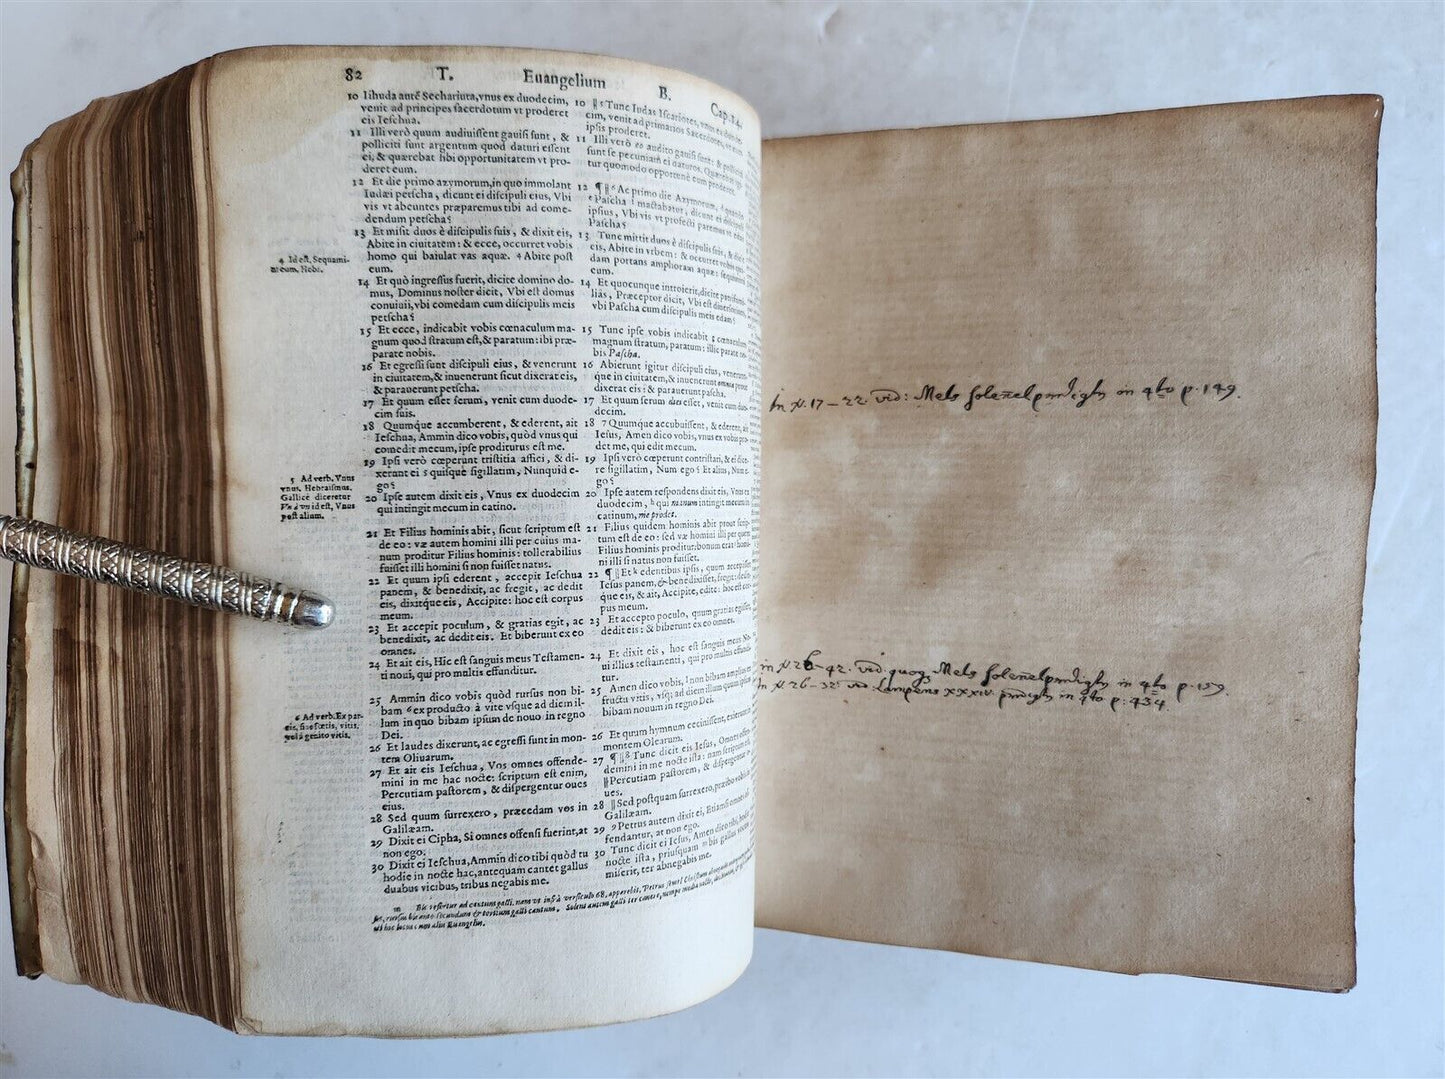 82 T. Euangelium B. Cap. 14.
10 Iihuda autē Sechariuta, vnus ex duodecim,
venit ad principes sacerdotum vt proderet
eis Ieschua.
11 Illi verò quum audiuissent gauisi sunt, &
polliciti sunt argentum quod daturi essent
ei, & quærebat sibi opportunitatem vt pro-
deret eum.
12 Et die primo azymorum, in quo immolant
Iudæi petscha, dicunt ei discipuli eius, Vbi
vis vt abeuntes præparemus tibi ad come-
dendum petscha?
13 Et misit duos è discipulis suis, & dixit eis,
Abite in ciuitatem: & ecce, occurret vobis
homo qui baiulat vas aquæ. 4 Abite post
eum.
14 Et quò ingressus fuerit, dicite domino do-
mus, Dominus noster dicit, Vbi est domus
conuiuii, vbi comedam cum discipulis meis
petscha?
15 Et ecce, indicabit vobis cœnaculum ma-
gnum quod stratum est, & paratum: ibi præ-
parate nobis.
16 Et egressi sunt discipuli eius, & venerunt
in ciuitatem, & inuenerunt sicut dixerat eis,
& parauerunt petscha.
17 Et quum esset serum, venit cum duode-
cim suis.
18 Quumque accumberent, & ederent, ait
Ieschua, Ammin dico vobis, quòd vnus qui
comedit mecum, ipse proditurus est me.
19 Ipsi verò cœperunt tristitia affici, & di-
xerunt ei 5 quisque sigillatim, Nunquid e-
go?
20 Ipse autem dixit eis, Vnus ex duodecim
qui intingit mecum in catino.
21 Et Filius hominis abit, sicut scriptum est
de eo: væ autem homini illi per cuius ma-
num proditur Filius hominis: tollerabilius
fuisset illi homini si non fuisset natus.
22 Et quum ipsi ederent, accepit Ieschua
panem, & benedixit, ac fregit, ac dedit
eis, dixitque eis, Accipite: hoc est corpus
meum.
23 Et accepit poculum, & gratias egit, ac
benedixit, ac dedit eis. Et biberunt ex eo
omnes.
24 Et ait eis, Hic est sanguis meus Testamen-
ti noui, qui pro multis effunditur.
25 Ammin dico vobis quòd rursus non bi-
bam 6 ex producto à vite vsque ad diem il-
lum in quo bibam ipsum de nouo in regno
Dei.
26 Et laudes dixerunt, ac egressi sunt in mon-
tem Oliuarum.
27 Et ait eis Ieschua, Vos omnes offende-
mini in me hac nocte: scriptum est enim,
Percutiam pastorem, & dispergentur oues
eius.
28 Sed quum surrexero, præcedam vos in
Galilæam.
29 Dixit ei Cipha, Si omnes offensi fuerint, at
non ego.
30 Dixit ei Ieschua, Ammin dico tibi quòd tu
hodie in nocte hac, antequam cantet gallus
duabus vicibus, tribus negabis me.
4 Id est, Sequami-
ni eum. Hebr.
5 Ad verb. Vnus
vnus. Hebraismus.
Gallicè diceretur
Vn à vn id est, Vnus
post alium.
6 Ad verb. Ex par-
eis, siue fœtis, vitis,
vel à genito vitis.
10 Tunc Iudas Iscariotes, vnus ex duode-
cim, venit ad primarios Sacerdotes, vt eum
ipsis proderet.
11 Illi verò eo audito gauisi sunt: & polliciti
sunt se pecuniam ei daturos. Quærebat igi-
tur quomodo opportunè eum proderet.
12 ¶ Ac primo die Azymorum, quando
Pascha mactabatur, dicunt ei discipuli
ipsius, Vbi vis vt profecti paremus vt edas
Pascha?
13 Tunc mittit duos è discipulis suis, & dicit
eis, Abite in vrbem: & occurret vobis qui-
dam portans amphoram aquæ: sequimini
eum.
14 Et quocunque introierit, dicite patrifami-
liâs, Præceptor dicit, Vbi est diuersorium,
vbi Pascha cum discipulis meis edam?
15 Tunc ipse vobis indicabit cœnaculum
magnum stratum, paratum: illic parate no-
bis Pascha.
16 Abierunt igitur discipuli eius, venerunt-
que in ciuitatem, & inuenerunt omnia prout
dixerat eis: & parauerunt pascha.
17 Et quum serum diei esset, venit cum duo-
decim.
18 7 Quumque accubuissent, & ederent, ait
Iesus, Amen dico vobis, vnus ex vobis pro-
det me, qui edit mecum.
19 Ipsi verò cœperunt contristari, & ei dice-
re sigillatim, Num ego? Et alius, Num
ego?
20 Ipse autem respondens dixit eis, Vnus ex
duodecim, qui manum intingit mecum in
catinum, me prodet.
21 Filius quidem hominis abit prout scrip-
tum est de eo: sed væ homini illi per quem
Filius hominis proditur: bonum erat homi-
ni illi si natus non fuisset.
22 ¶ Et edentibus ipsis, quum accepisset
Iesus panem, & benedixisset, fregit: dedit-
que eis, & ait, Accipite, edite: hoc est cor-
pus meum.
23 Et accepto poculo, quum gratias egisset,
dedit eis: & biberunt ex eo omnes.
24 Et dixit eis, hoc est sanguis meus No-
ui illius testamenti, qui pro multis effundi-
tur.
25 Amen dico vobis, Non bibam amplius ex
fructu vitis, vsq; ad diem illum quum ipsum
bibam nouum in regno Dei.
26 Et quum hymnum cecinissent, exierunt in
montem Olearum.
27 ¶ 8 Tunc dicit eis Iesus, Omnes offen-
demini in me nocte ista: nam scriptum est,
Percutiam pastorem, & dispergentur o-
ues.
28 Sed postquam surrexero, præibo vobis in
Galilæam.
29 9 Petrus autem dixit ei, Etiamsi omnes of-
fendantur, at non ego.
30 Tunc dicit ei Iesus, Amen dico tibi, hodie
nocte ista, priusquam bis gallus vocem
miserit, ter abnegabis me.
m Bis refertur ad cantum galli, nam vt infrà versiculo 68, apparebit, Petrus semel Christum
Solent autem galli ter canere,
ad hoc locus non alia Euangelia.
in v. 17 - 22. vid: Mels in 4to p. 149.
in v. 26 - 42. vid. quoq; Mels in 4to p. 157.
in v. 26 - 32. vid. Lampens XXXIV. in 4to p. 434